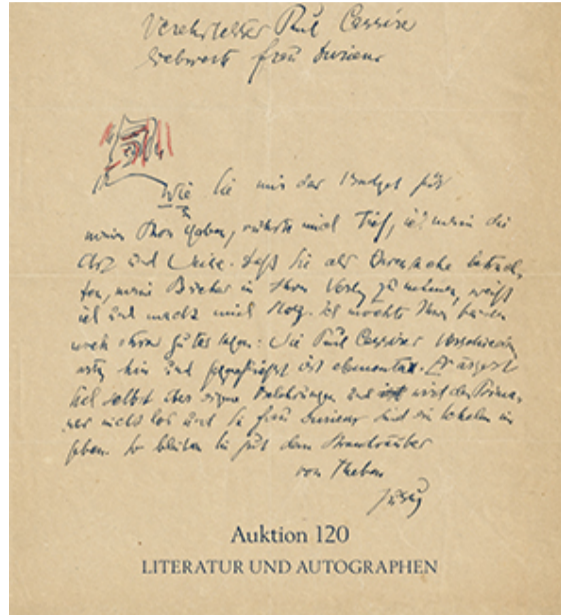 Verehrtester Paul Cassirer
liebwerte Frau Durieux
Wie Sie mir das Budget für
meinen Thron gaben, rührte mich tief, ich meine die
Art und Weise. Daß Sie als Ehrensache betrach-
ten, meine Bücher in Ihren Verlag zu nehmen, weiß
ich und macht mich stolz. Ich möchte Ihnen beiden
noch etwas gutes sagen: Die Paul Cassirer
hin und ist elementar. Er ärgert
sich selbst über eigene Belehrungen und wird den Prima-
ner nicht los und Sie Frau Durieux sind ein in
So bleiben Sie gut dem
von Theben
Jussuf
Auktion 120
LITERATUR UND AUTOGRAPHEN